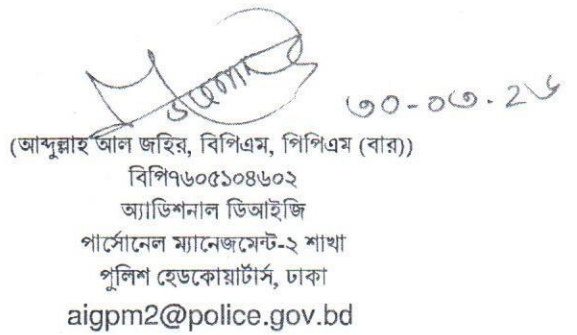 ৩০-০৩-২৬
(আব্দুল্লাহ আল জহির, বিপিএম, পিপিএম (বার))
বিপি৭৬০৫১০৪৬০২
অ্যাডিশনাল ডিআইজি
পার্সোনেল ম্যানেজমেন্ট-২ শাখা
পুলিশ হেডকোয়ার্টার্স, ঢাকা
aigpm2@police.gov.bd